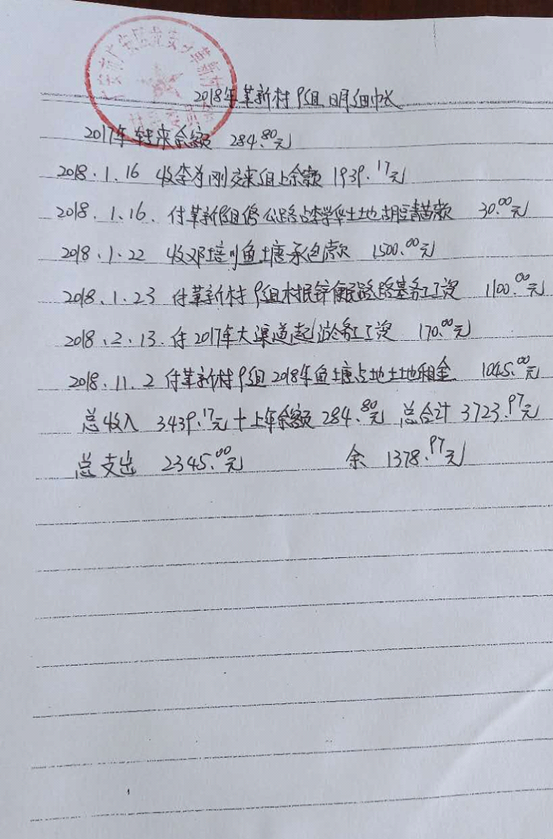 2018年革新村P组明细帐
2017年转来余额 284.80元
2018.1.16 收李为刚交来组上余额 1939.17元
2018.1.16. 付革新P组修公路占李学华土地胡豆青苗款 30.00元
2018.1.22 收邓培川鱼塘承包款 1500.00元
2018.1.23 付革新村P组村民锌便民路路基务工工资 1100.00元
2018.2.13. 付2017年大渠道起淤务工工资 170.00元
2018.11.2 付革新村P组2018年鱼塘占地土地租金 1045.00元
总收入 3439.17元+上年余额284.80元 总合计3723.97元
总支出 2345.00元 余 1378.97元